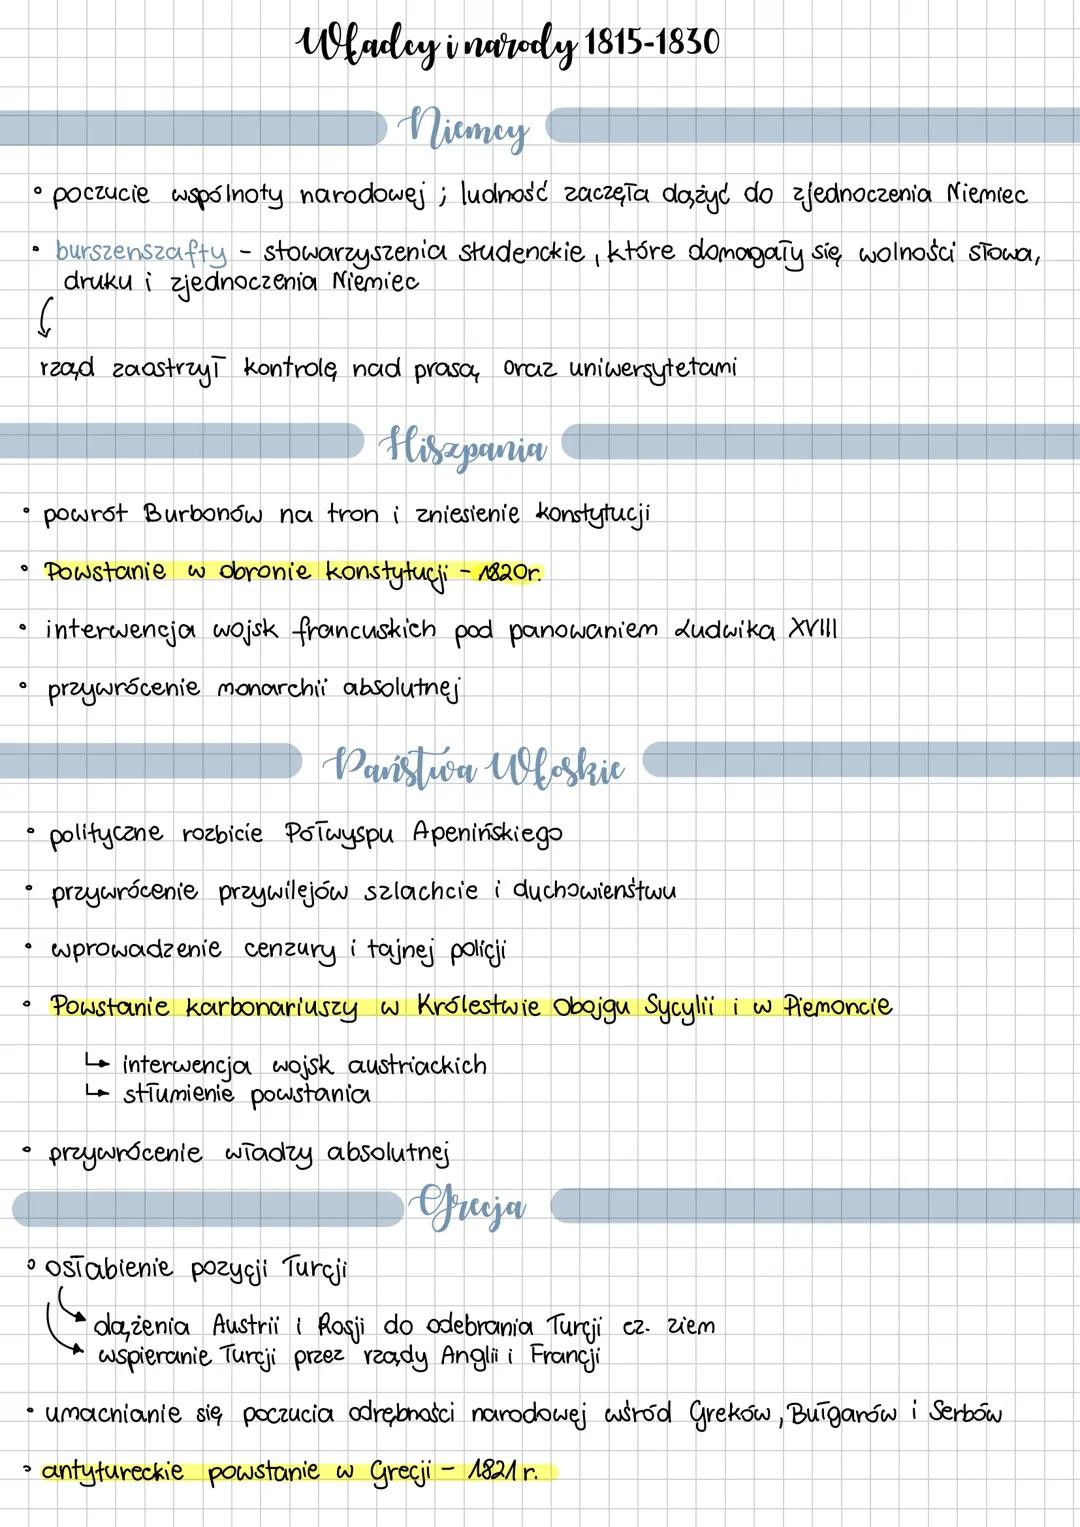 Władcy i narody 1815-1830
Niemcy
• poczucie wspólnoty narodowej ; ludność zaczęła dążyć do zjednoczenia Niemiec
• burszenszafty - stowarzyszenia studenckie, które domagały się wolności słowa,
druku i zjednoczenia Niemiec
rząd zaostrzył kontrolę nad prasą oraz uniwersytetami
Hiszpania
• powrót Burbonów na tron i zniesienie konstytucji
• Powstanie w obronie konstytucji - 1820r.
• interwencja wojsk francuskich pod panowaniem Ludwika XVIII
• przywrócenie monarchii absolutnej
Państwa Włoskie
• polityczne rozbicie Półwyspu Apenińskiego
• przywrócenie przywilejów szlachcie i duchowieństwu
• wprowadzenie cenzury i tajnej policji
• Powstanie karbonariuszy w Królestwie Obojgu Sycylii i w Piemoncie
↳ interwencja wojsk austriackich
↳ stłumienie powstania
• przywrócenie władzy absolutnej
Grecja
• osłabienie pozycji Turcji
dążenia Austrii i Rosji do odebrania Turcji cz. ziem
wspieranie Turcji przez rządy Anglii i Francji
• umacnianie się poczucia odrębności narodowej wśród Greków, Bułgarów i Serbów
• antytureckie powstanie w Grecji - 1821 r.